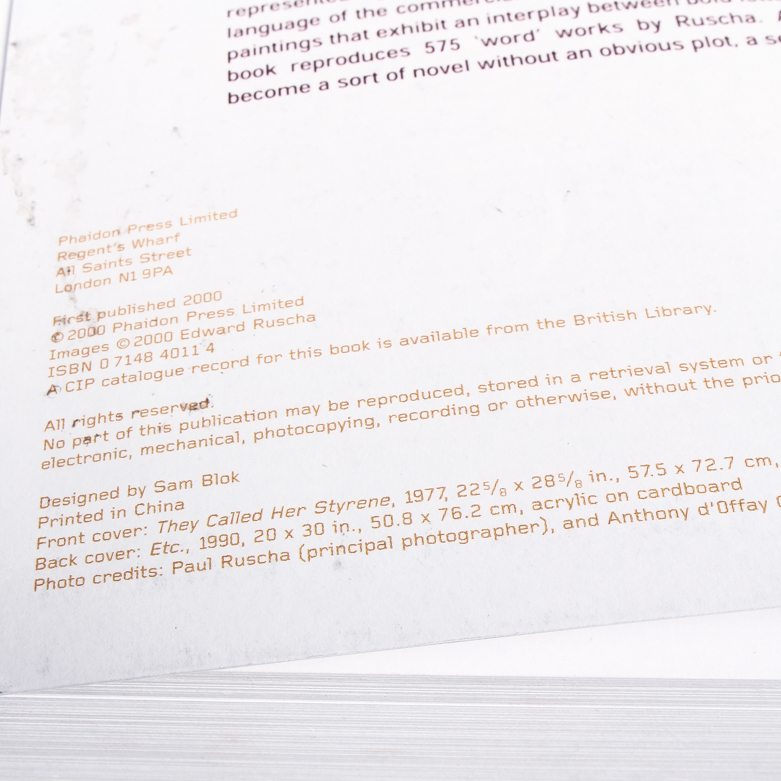 language of the
paintings that exhibit an interplay between
book reproduces 575 'word' works by Ruscha.
become a sort of novel without an obvious plot, a
Phaidon Press Limited
Regent's Wharf
All Saints Street
London N1 9PA
First published 2000
©2000 Phaidon Press Limited
Images ©2000 Edward Ruscha
ISBN 0 7148 4011 4
A CIP catalogue record for this book is available from the British Library.
All rights reserved.
No part of this publication may be reproduced, stored in a retrieval system or
electronic, mechanical, photocopying, recording or otherwise, without the
Designed by Sam Blok
Printed in China
Front cover: They Called Her Styrene, 1977, 22 5/8 x 28 5/8 in., 57.5 x 72.7 cm,
Back cover: Etc., 1990, 20 x 30 in., 50.8 x 76.2 cm, acrylic on cardboard
Photo credits: Paul Ruscha (principal photographer), and Anthony d'Offay